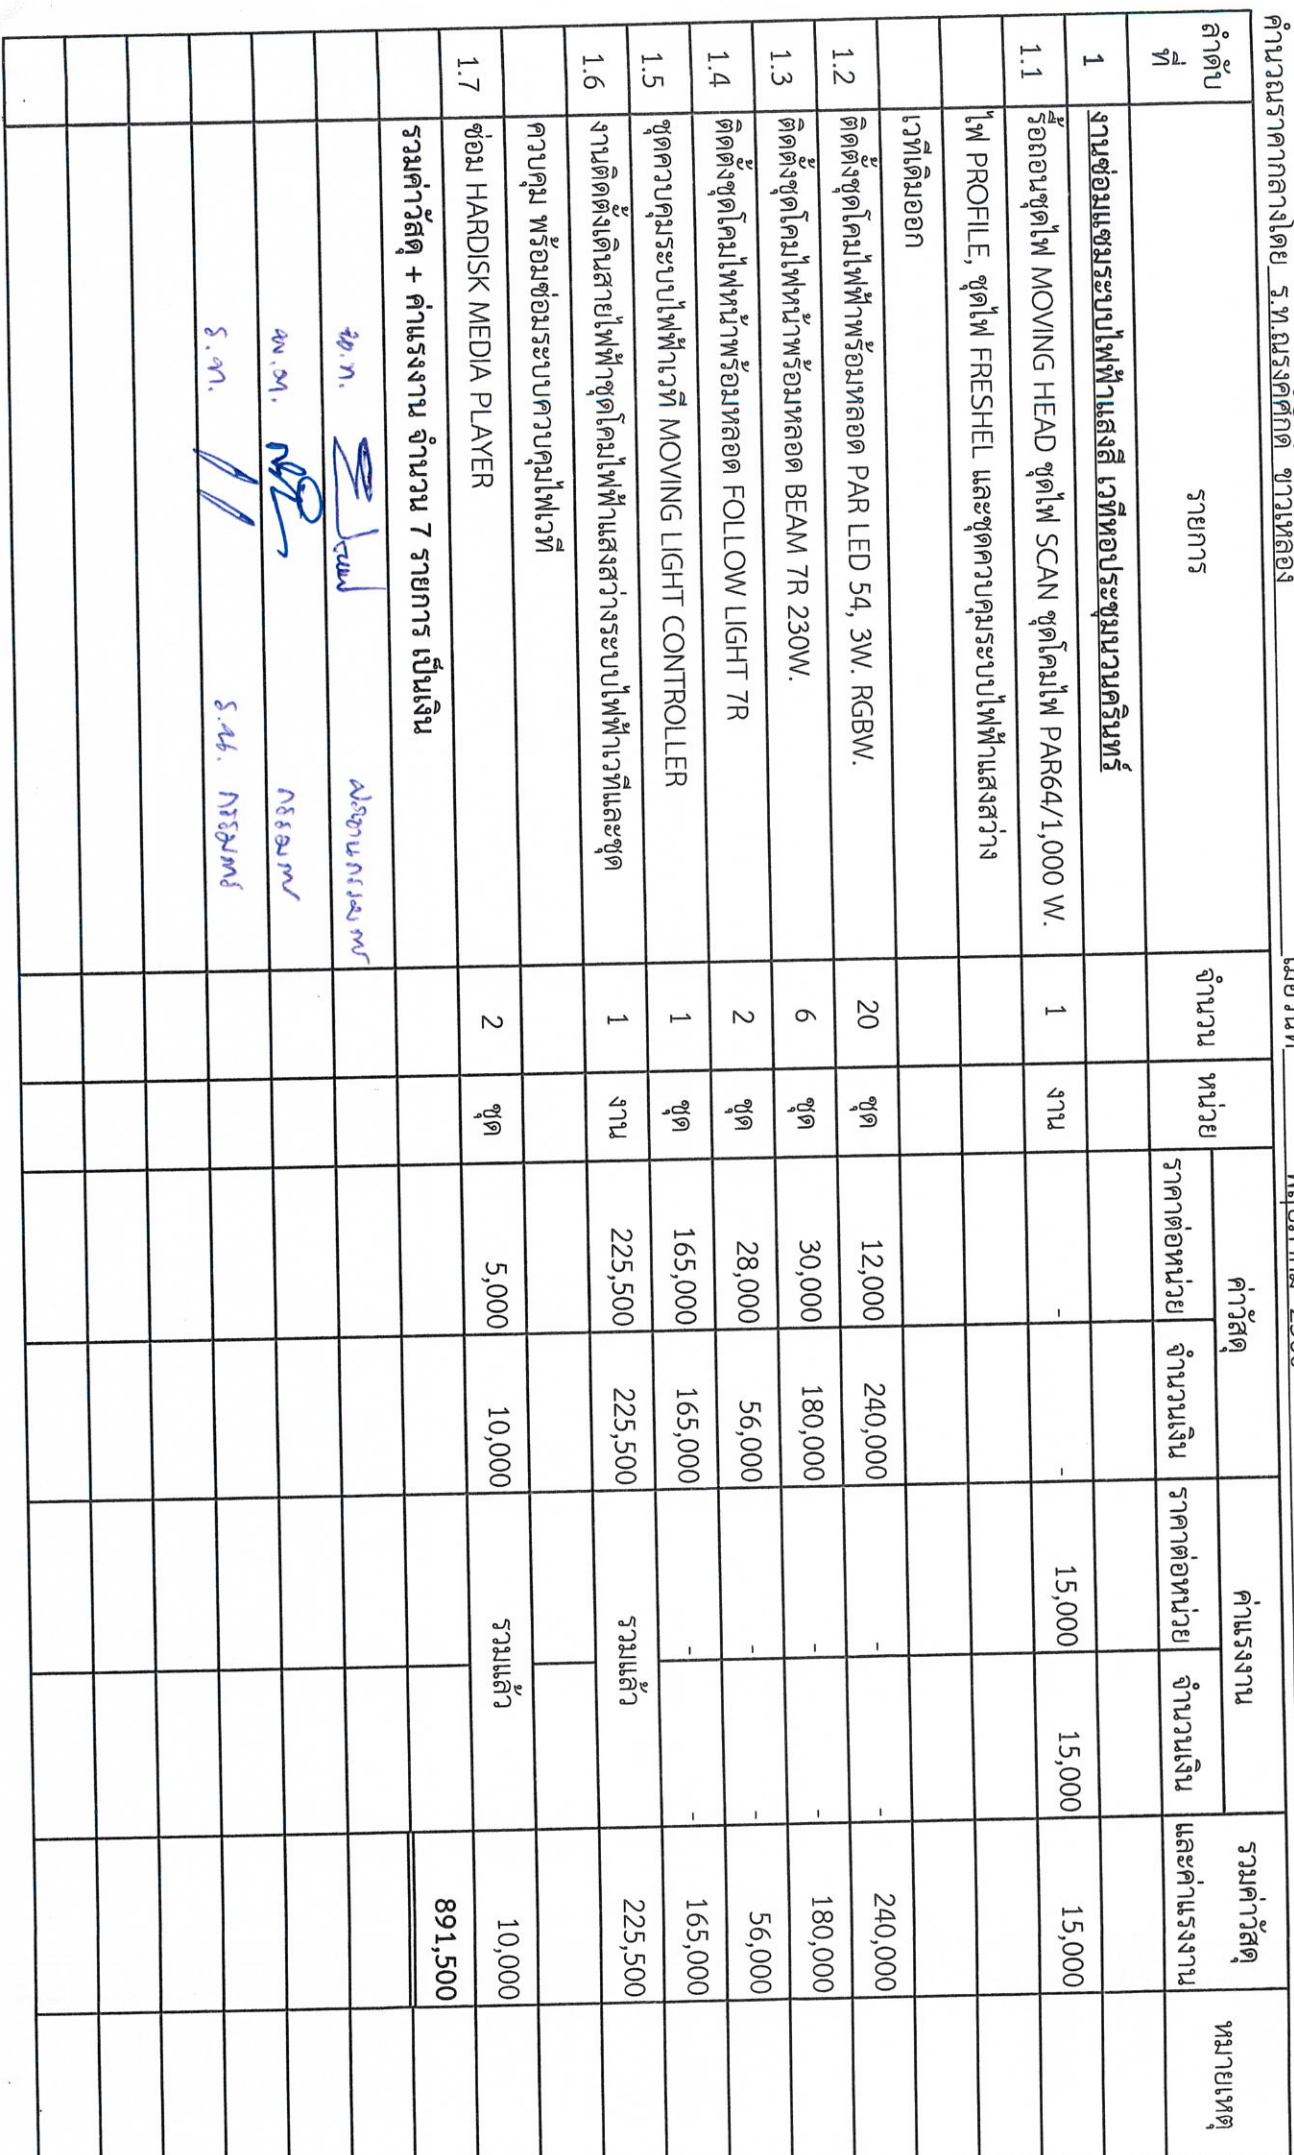 คำนวณราคากลางโดย ร.ท.ณรงค์ศักดิ์ ขาวเหลือง
ลำดับที่ รายการ จำนวน หน่วย ค่าวัสดุ ค่าแรงงาน รวมค่าวัสดุและค่าแรงงาน หมายเหตุ
ราคาต่อหน่วย จำนวนเงิน ราคาต่อหน่วย จำนวนเงิน
1 งานซ่อมแซมระบบไฟฟ้าแสงสี เวทีหอประชุมนวนครินทร์
1.1 รื้อถอนชุดไฟ MOVING HEAD ชุดไฟ SCAN ชุดโคมไฟ PAR64/1,000 W. 1 งาน - - 15,000 15,000 15,000
ไฟ PROFILE, ชุดไฟ FRESHEL และชุดควบคุมระบบไฟฟ้าแสงสว่าง
เวทีเดิมออก
1.2 ติดตั้งชุดโคมไฟฟ้าพร้อมหลอด PAR LED 54, 3W. RGBW. 20 ชุด 12,000 240,000 - - 240,000
1.3 ติดตั้งชุดโคมไฟหน้าพร้อมหลอด BEAM 7R 230W. 6 ชุด 30,000 180,000 - - 180,000
1.4 ติดตั้งชุดโคมไฟหน้าพร้อมหลอด FOLLOW LIGHT 7R 2 ชุด 28,000 56,000 - - 56,000
1.5 ชุดควบคุมระบบไฟฟ้าเวที MOVING LIGHT CONTROLLER 1 ชุด 165,000 165,000 - - 165,000
1.6 งานติดตั้งเดินสายไฟฟ้าชุดโคมไฟฟ้าแสงสว่างระบบไฟฟ้าเวทีและชุด 1 งาน 225,500 225,500 รวมแล้ว 225,500
ควบคุม พร้อมซ่อมระบบควบคุมไฟเวที
1.7 ซ่อม HARDISK MEDIA PLAYER 2 ชุด 5,000 10,000 รวมแล้ว 10,000
รวมค่าวัสดุ + ค่าแรงงาน จำนวน 7 รายการ เป็นเงิน 891,500
พ.ท. ประธานกรรมการ
พ.ต. กรรมการ
ร.ท. ร.น. กรรมการ